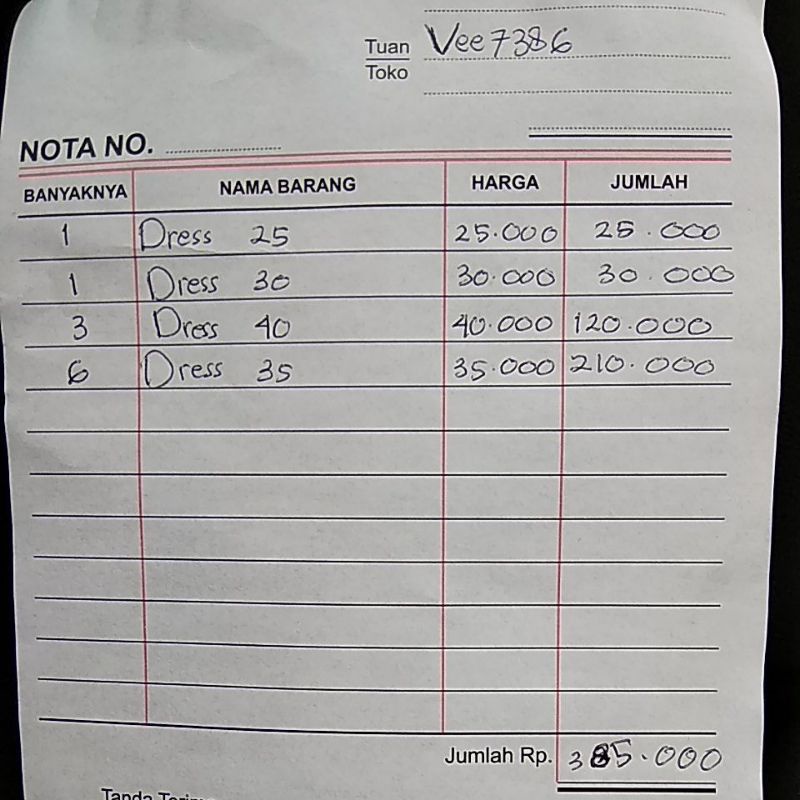 Tuan Vee7386
Toko
NOTA NO.
BANYAKNYA NAMA BARANG HARGA JUMLAH
1 Dress 25 25.000 25.000
1 Dress 30 30.000 30.000
3 Dress 40 40.000 120.000
6 Dress 35 35.000 210.000
Jumlah Rp. 385.000
Tanda